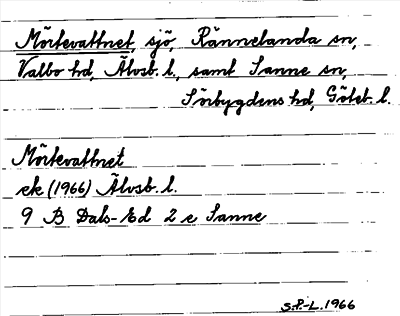 Mörtevattnet, sjö, Rännelanda sn,
Valbo hd, Älvsb. l., samt Sanne sn,
Sörbygdens hd, Göteb. l.
Mörtevattnet
ek (1966) Älvsb. l.
9 B Dals-Ed 2 e Sanne
S.P.-L. 1966